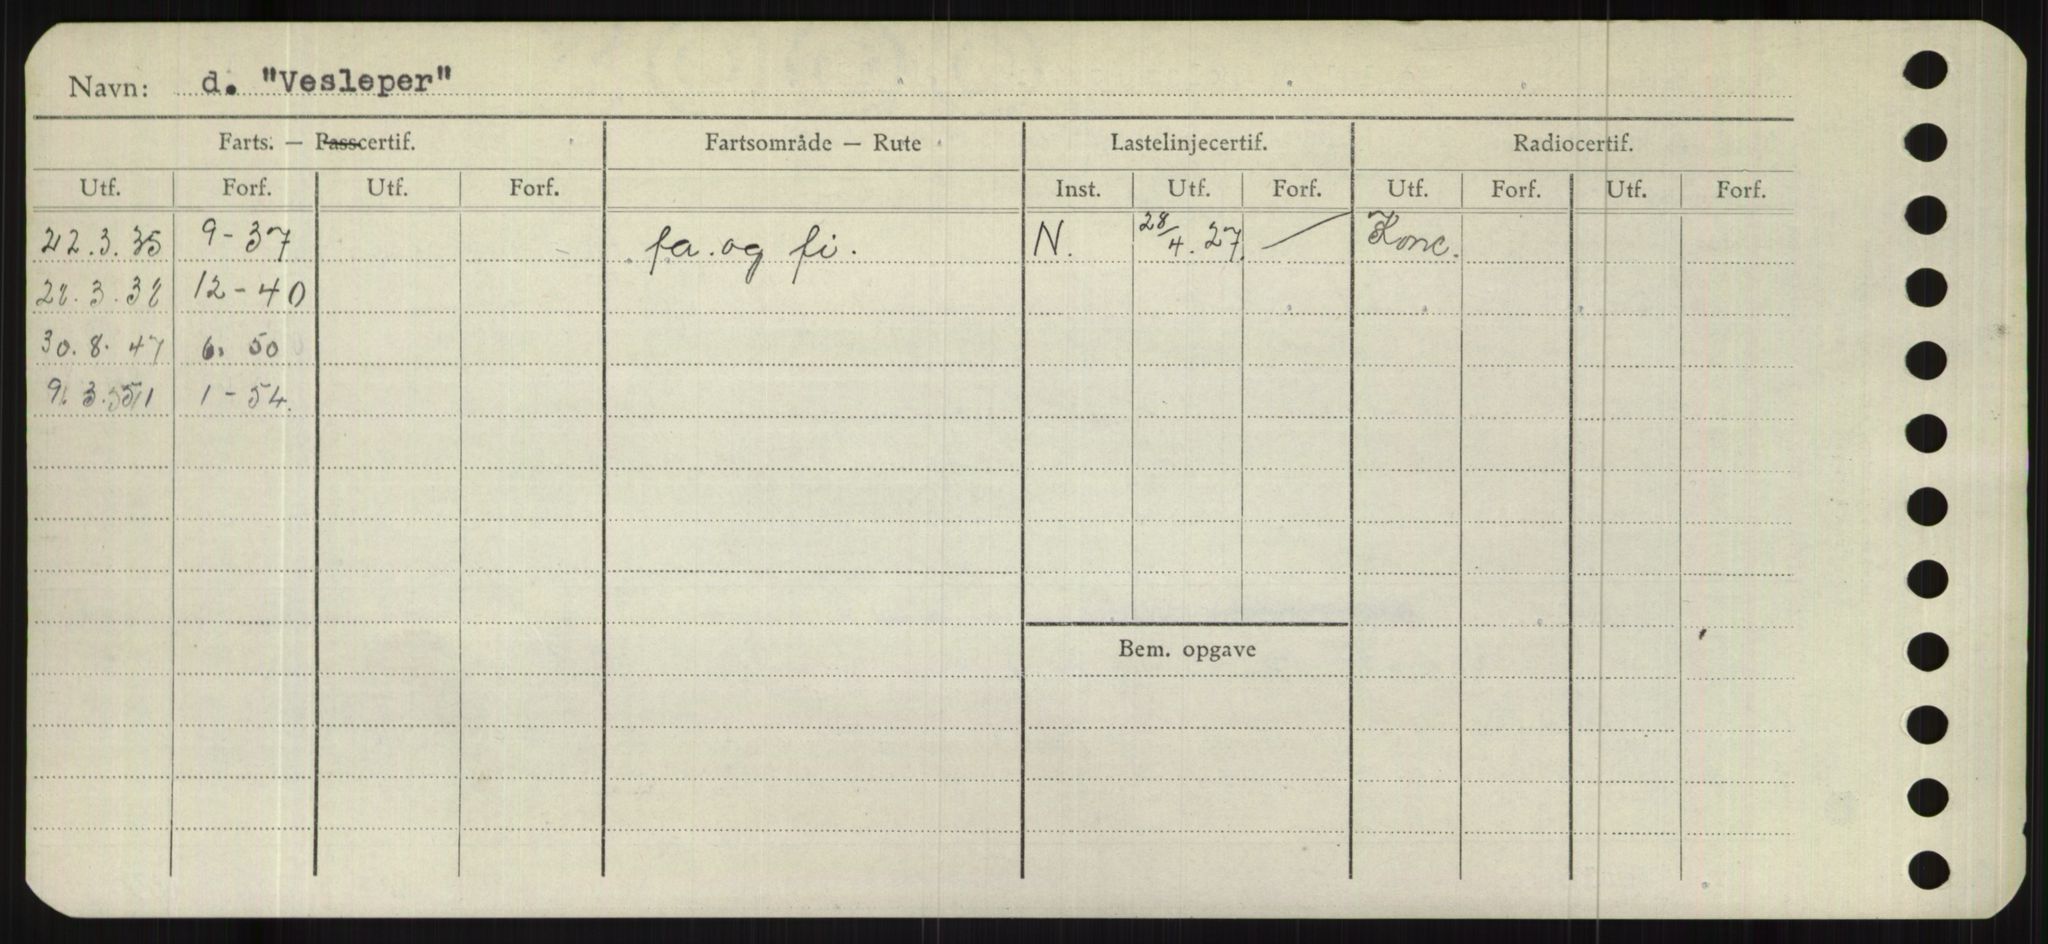 Navn: d. "Vesleper"
Farts. — Passcertif. Fartsområde — Rute Lastelinjecertif. Radiocertif.
Utf. Forf. Utf. Forf. Inst. Utf. Forf. Utf. Forf. Utf. Forf.
22.3.35 9-37 fa. og fi. N. 28/4.27 Konc.
28.3.38 12-40
30.8.47 6. 50
9.3.51 1-54.
Bem. opgave